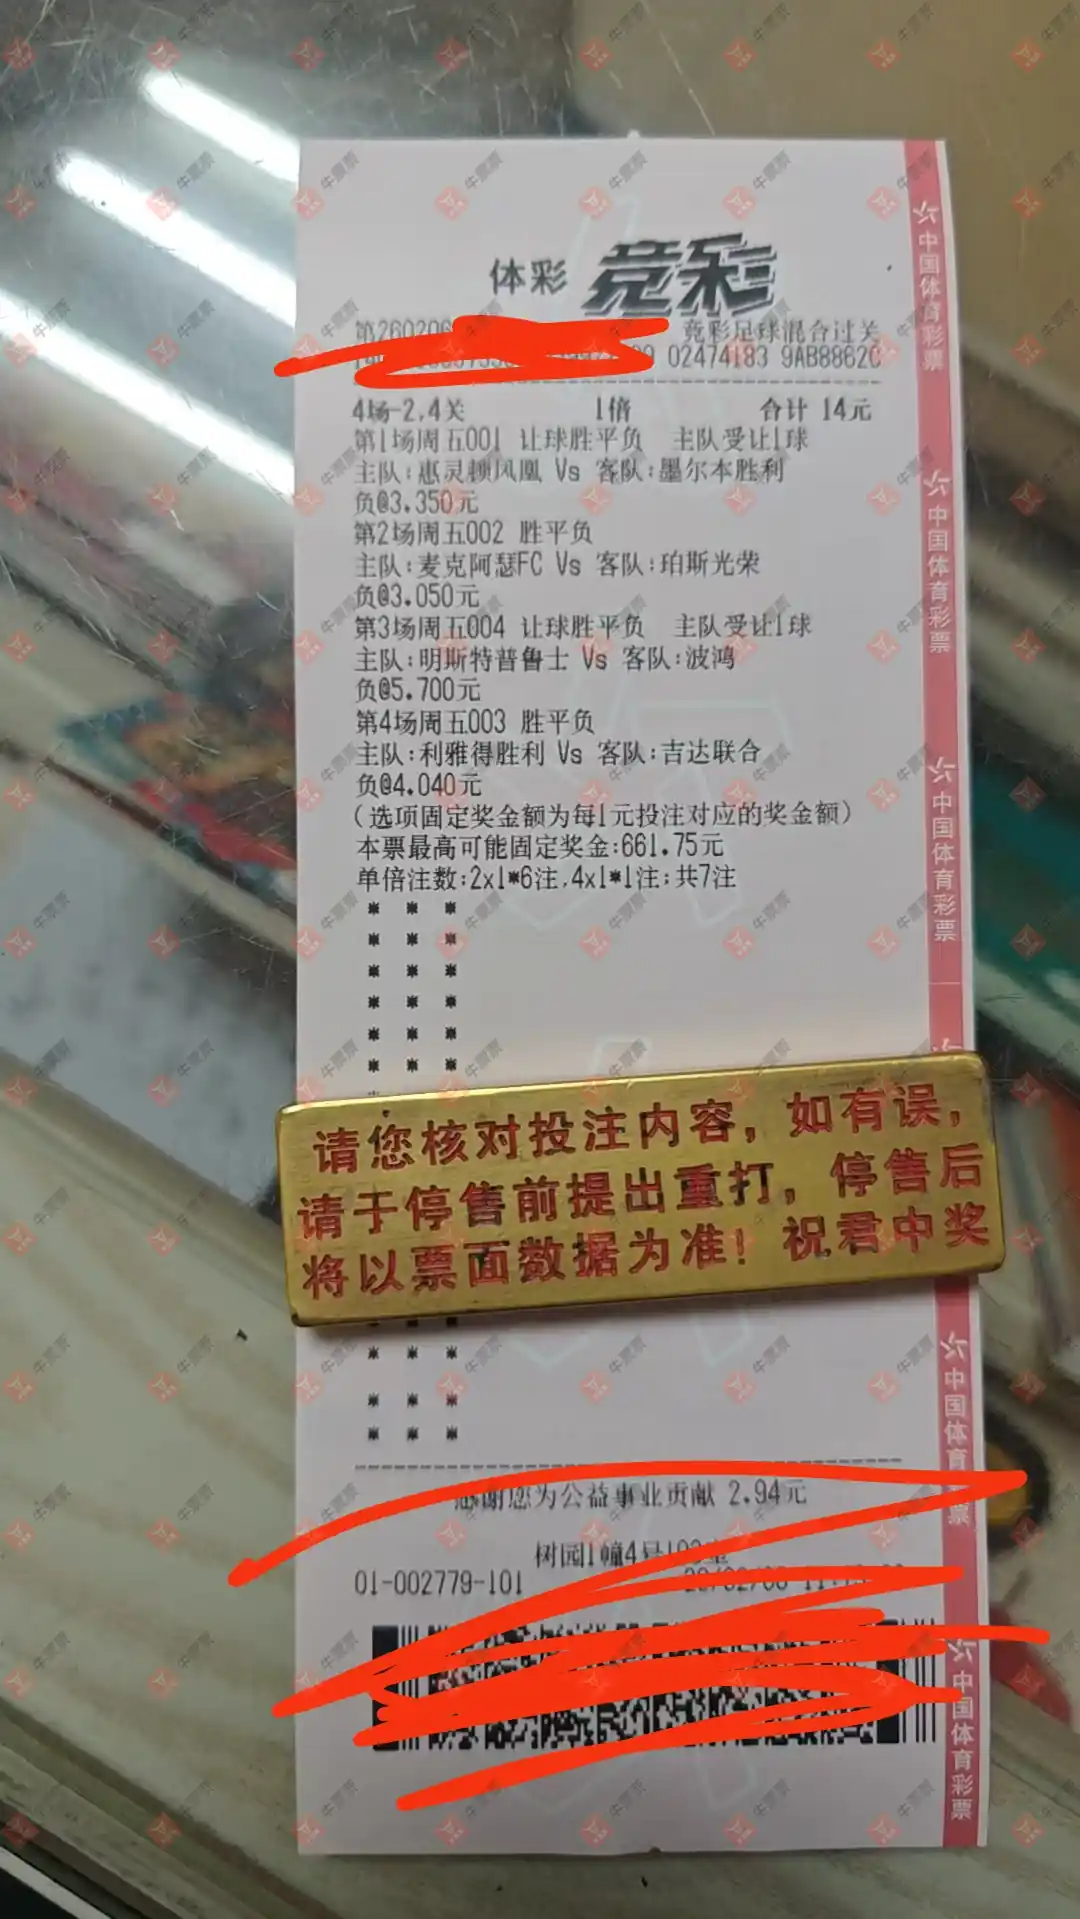 体彩 竞彩
第260206 竞彩足球混合过关
02474183 9AB8862C
4场-2,4关 1倍 合计 14元
第1场周五001 让球胜平负 主队受让1球
主队:惠灵顿凤凰 Vs 客队:墨尔本胜利
负@3.350元
第2场周五002 胜平负
主队:麦克阿瑟FC Vs 客队:珀斯光荣
负@3.050元
第3场周五004 让球胜平负 主队受让1球
主队:明斯特普鲁士 Vs 客队:波鸿
负@5.700元
第4场周五003 胜平负
主队:利雅得胜利 Vs 客队:吉达联合
负@4.040元
(选项固定奖金额为每1元投注对应的奖金额)
本票最高可能固定奖金:661.75元
单倍注数:2x1*6注,4x1*1注;共7注
请您核对投注内容，如有误，
请于停售前提出重打，停售后
将以票面数据为准！祝君中奖
感谢您为公益事业贡献 2.94元
树园1幢4号
01-002779-101
中国体育彩票
中国体育彩票
中国体育彩票
中国体育彩票
中国体育彩票
牛票票